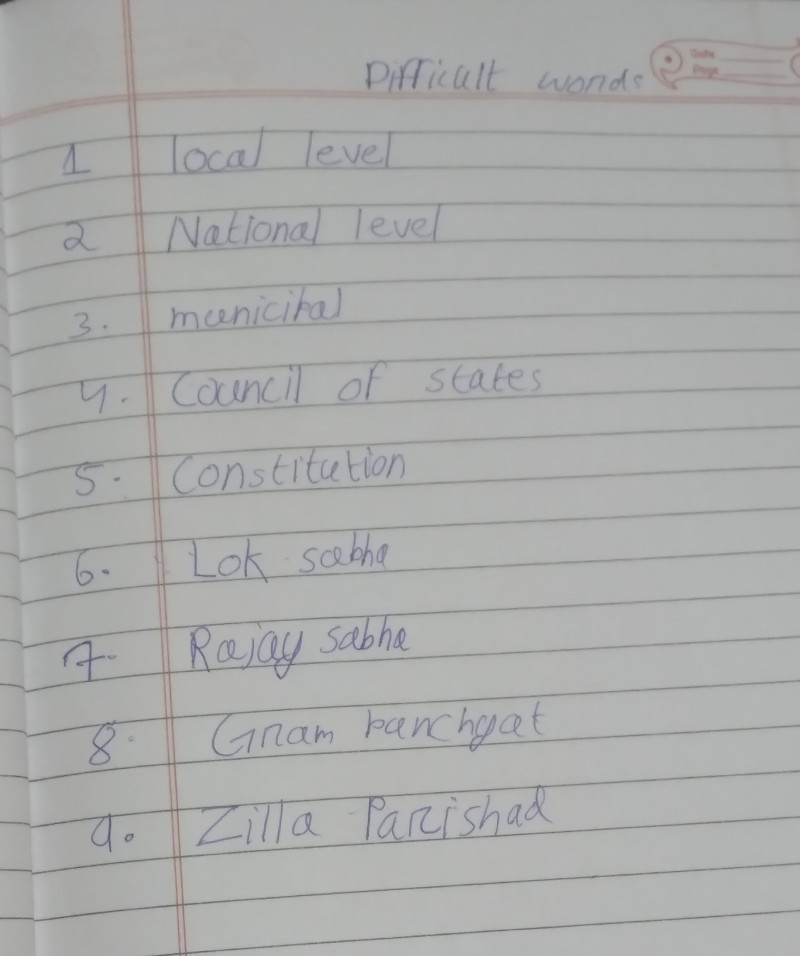 Difficult words
1 local level
2 National level
3. municipal
4. Council of states
5. Constitution
6. Lok sabha
7. Rajay sabha
8. Gram panchyat
9. Zilla Parishad